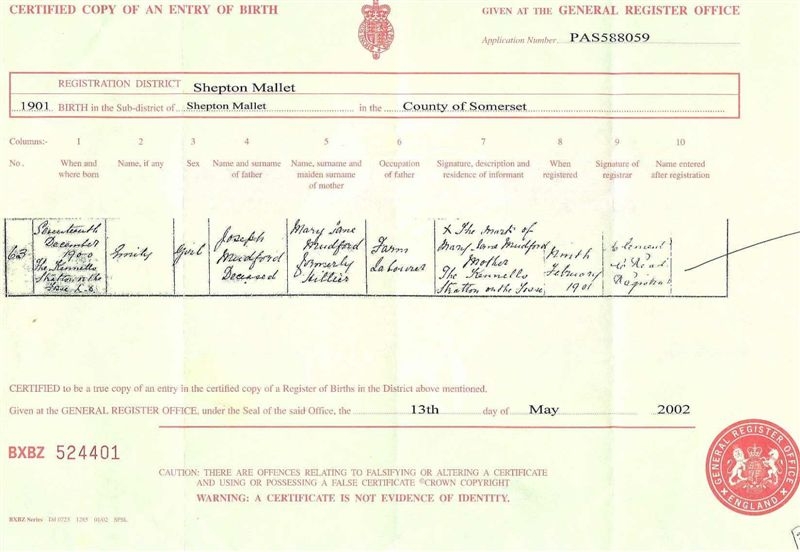 CERTIFIED COPY OF AN ENTRY OF BIRTH
GIVEN AT THE GENERAL REGISTER OFFICE
Application Number PAS588059
REGISTRATION DISTRICT Shepton Mallet
1901 BIRTH in the Sub-district of Shepton Mallet in the County of Somerset
Columns:- 1 2 3 4 5 6 7 8 9 10
No. When and where born Name, if any Sex Name and surname of father Name, surname and maiden surname of mother Occupation of father Signature, description and residence of informant When registered Signature of registrar Name entered after registration
63
Seventeenth
December
1900
The Kennells
Stratton on the
Fosse
Emily
Girl
Joseph
Mudford
Deceased
Mary Jane
Mudford
formerly
Hillier
Farm
Labourer
X The mark of
Mary Jane Mudford
Mother
The Kennells
Stratton on the Fosse
Ninth
February
1901
Clement
Read
Registrar
CERTIFIED to be a true copy of an entry in the certified copy of a Register of Births in the District above mentioned.
Given at the GENERAL REGISTER OFFICE, under the Seal of the said Office, the 13th day of May 2002
BXBZ 524401
CAUTION: THERE ARE OFFENCES RELATING TO FALSIFYING OR ALTERING A CERTIFICATE
AND USING OR POSSESSING A FALSE CERTIFICATE ©CROWN COPYRIGHT
WARNING: A CERTIFICATE IS NOT EVIDENCE OF IDENTITY.
GENERAL REGISTER OFFICE
ENGLAND
BXBZ Series 1285 01/02 SPSL